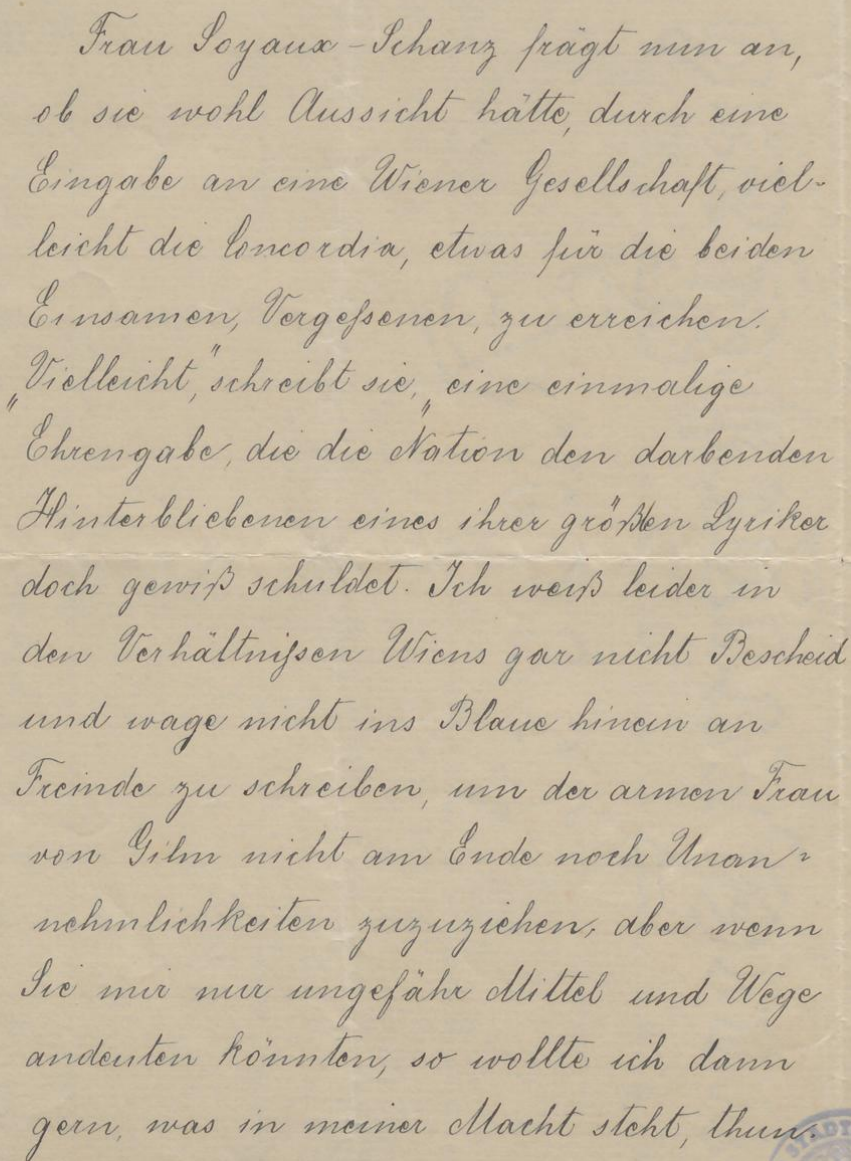 Frau Soyaux-Schanz frägt nun an,
ob sie wohl Aussicht hätte, durch eine
Eingabe an eine Wiener Gesellschaft, viel-
leicht die Concordia, etwas für die beiden
Einsamen, Vergeſsenen, zu erreichen.
„Vielleicht," schreibt sie, „eine einmalige
Ehrengabe, die die Nation den darbenden
Hinterbliebenen eines ihrer größten Lyriker
doch gewiß schuldet. Ich weiß leider in
den Verhältniſsen Wiens gar nicht Bescheid
und wage nicht ins Blaue hinein an
Freinde zu schreiben, um der armen Frau
von Gilm nicht am Ende noch Unan=
nehmlichkeiten zuzuziehen, aber wenn
Sie mir nur ungefähr Mittel und Wege
andeuten könnten, so wollte ich dann
gern, was in meiner Macht steht, thun.
STADT